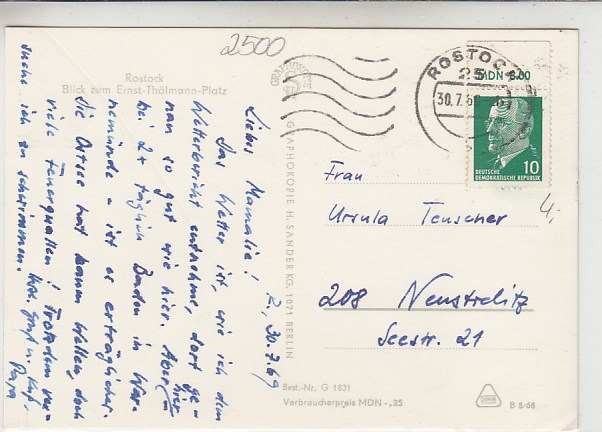 2500
Rostock
Blick zum Ernst-Thälmann-Platz
Liebes Mamalie!
R., 30.7.69
Das Wetter ist, wie ich dem
Wetterbericht entnehme, dort ge-
nau so gut wie hier. Aber hier
bei 2x täglich Baden in War-
nemünde – ist es erträglicher.
Die Ostsee hat kaum Wellen, doch
viele Feuerquallen! Trotzdem ver-
suche ich zu schwimmen.
Herzl. Gruß u. Kuß,
Papa
GRAPHOKOPIE H. SANDER KG, 1071 BERLIN
ROSTOCK
25
30.7.69
MDN 8.00
10
DEUTSCHE
DEMOKRATISCHE REPUBLIK
4,-
Frau
Ursula Teuscher
208 Neustrelitz
Seestr. 21
Best.-Nr. G 1831
Verbraucherpreis MDN -,25
B 8/68